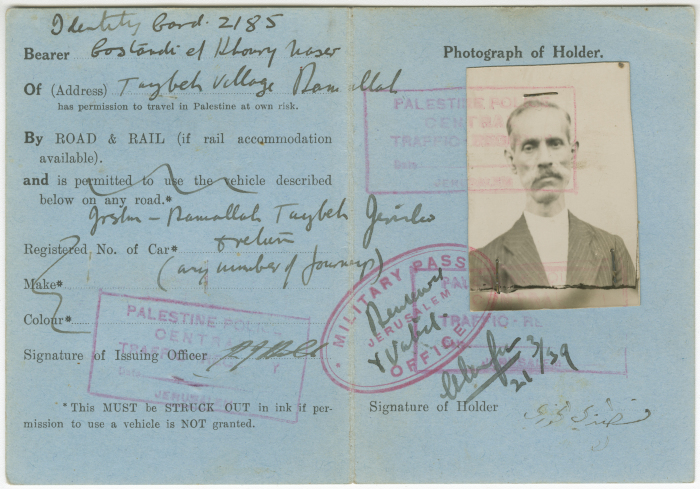 Identity Card. 2185
Bearer Costandi el Khoury Naser
Of (Address) Taybeh Village Ramallah
has permission to travel in Palestine at own risk.
By ROAD & RAIL (if rail accommodation
available).
and is permitted to use the vehicle described
below on any road.*
Jrslm – Ramallah Taybeh Jericho
Registered No. of Car* & return
(any number of journeys)
Make*
Colour*
Signature of Issuing Officer
*This MUST be STRUCK OUT in ink if per-
mission to use a vehicle is NOT granted.
PALESTINE POLICE
CENTRAL
TRAFFIC
Date
JERUSALEM
Photograph of Holder.
PALESTINE POLICE
CENTRAL
TRAFFIC
Date
JERUSALEM
MILITARY PASS
JERUSALEM
OFFICE
Renewed
& Valid
21/3/39
TRAFFIC
Signature of Holder